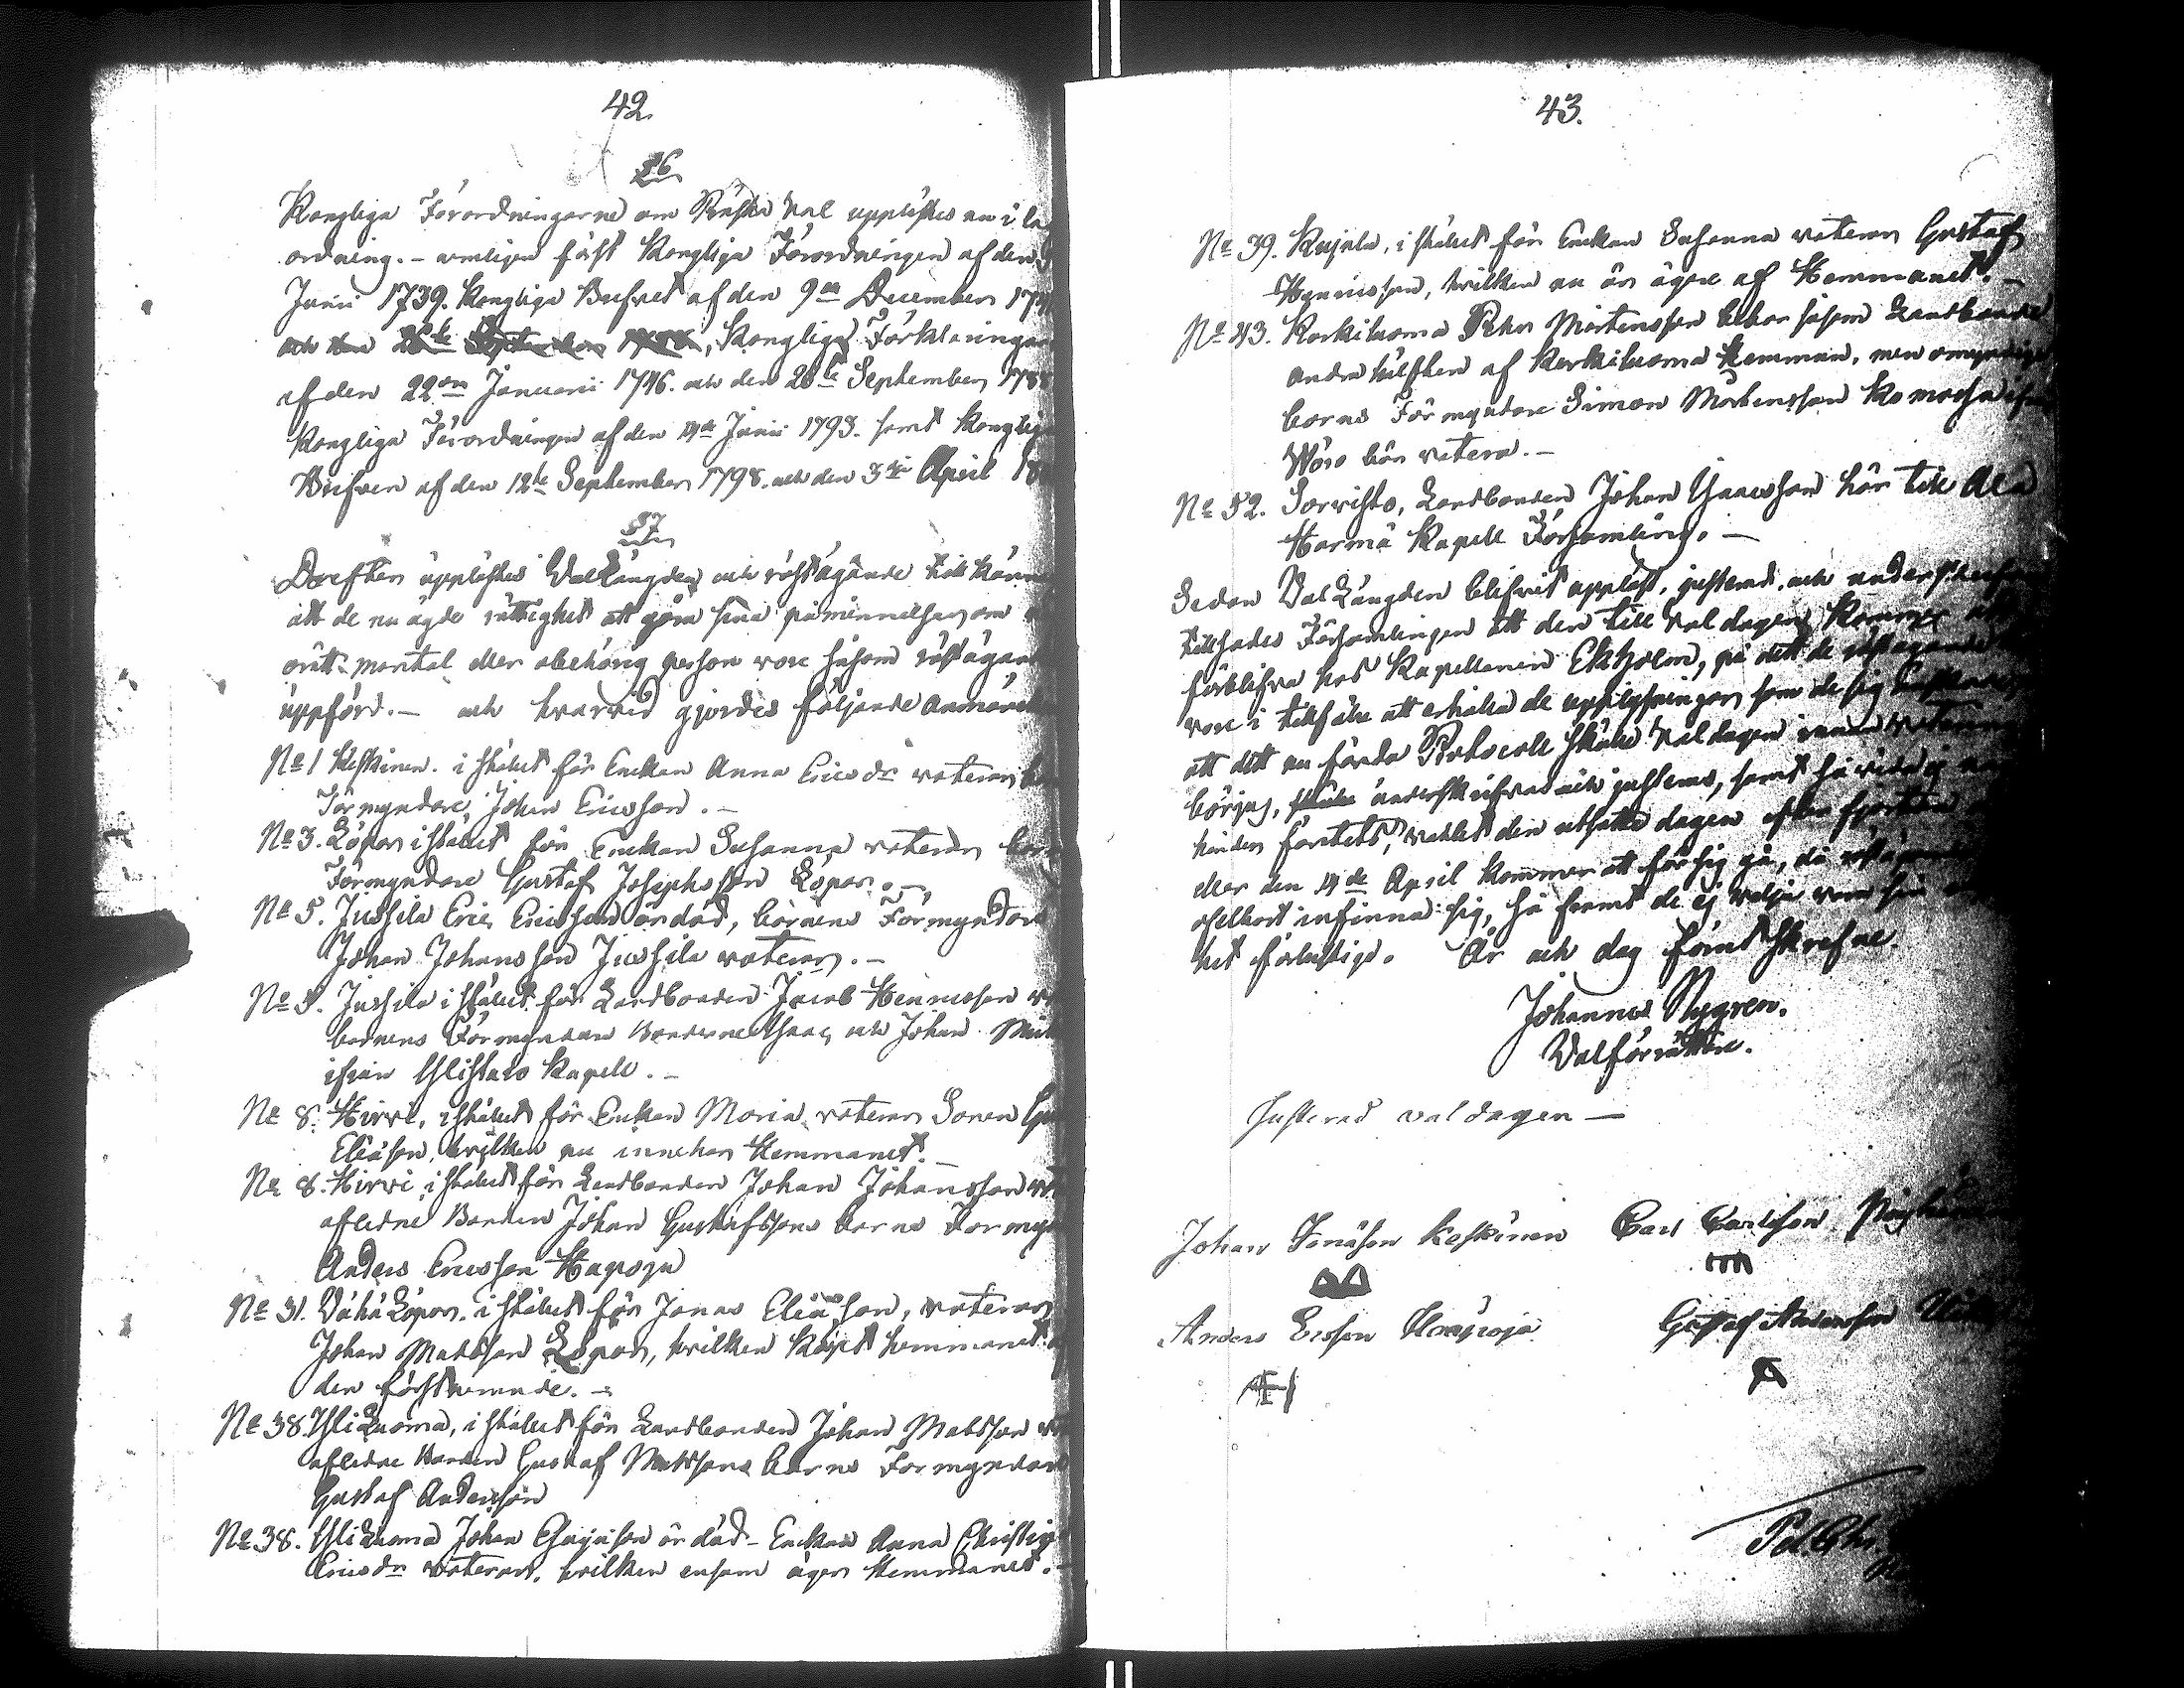 42.
§6
Kongliga Förordningarne om Präste Val upplästes nu i la
ordning. – nemligen först Kongliga Förordningen af den
Junii 1739. Kongliga Brefvet af den 9de December 17
och den 28de September, Kongliga Förklaringar
af den 22dra Januarii 1746. och den 28de September 178
Kongliga Förordningen af den 14de Junii 1793. samt Kongliga
Brefven af den 12te September 1798. och den 3dje April 18
§7
Derefter upplästes Vallängden och röstägande tillkänna
att de nu ägde rättighet att göra sina påminnelser, om
orätt mantal eller obehörig person vore såsom röstägande
uppförd. – och hvarvid gjordes följande anmärk
No 1 Keskinen. i stället för Enckan Anna Ericsdr voterar
Förmyndare, Johan Ericsson. –
No 3. Löpar i stället för Enckan Susanna voterar barn
Förmyndare Gustaf Josephsson Löpar. –
No 5. Jussila Eric Ericsson är död, barnens Förmyndare
Johan Johansson Jussila voterar. –
No 5. Jussila i stället för Landbonden Jacob Henricsson
barnens Förmyndare Bönderne Isaac och Johan
ifrån Ylistaro Kapell. –
No 8. Hirvi, i stället för Enckan Maria voterar Sonen
Eliasson, hvilken nu innehar Hemmanet. –
No 8. Hirvi i stället för Landbonden Johan Johansson
aflidne Bonden Johan Gustafssons barns Formyn
Anders Ericsson Haapoja
No 31. Vähä Löpar. i stället för Jonas Eliasson, voterar
Johan Mattsson Löpar, hvilken köpt hemmanet
den förstnemnde. –
No 38. Yliluoma, i stället för Landbonden Johan Mattsson
aflidne Bonden Gustaf Mattssons barns Formyndare
Gustaf Andersson
No 38. Yliluoma Johan Esajasson är död – Enckan Anna Christina
Ericsdr voterar. hvilken ensam äger Hemmanet. –
43.
No 39. Kujala, i stället för Enckan Susanna voterar Gustaf
Henricsson, hvilken nu är ägare af Hemmanet. –
No 43. Korkiluoma Petter Mårtensson brukar såsom Landbonde
andra hälften af Korkiluoma Hemman, men omyndige
barns Förmyndare Simon Mårtensson
Wörå bör votera. –
No 52. Sorvisto, Landbonden Johan Isaacsson hör till Ala
Härmä Kapell Församling. –
Sedan Vallängden blifvit uppläst, justerad, och underskrifven
tillsades Församlingen att den till Valdagen kommer att
förblifva hos Kapellanen Ekholm, på dett de röstägande
vore i tillfälle att erhålla de upplysningar, som de sig
att dett nu förda Protocoll skulle Valdagen innan voterin
börjas, underskrifvas och justeras, samt så vida ej
hinder föreföll, valet den utsatte dagen efter fjorton
eller den 14de April kommer att för sig gå, då röstägande
ofelbart infinna sig, så framt de ej vilja vara sin
het förlustige. År och dag förut skrefne.
Johannes Nygren.
Valförrättare.
Justerad valdagen –
Johan Jonäson Keskinen Carl Carlsson
Anders Ersson Haapoja. Gustaf Andersson